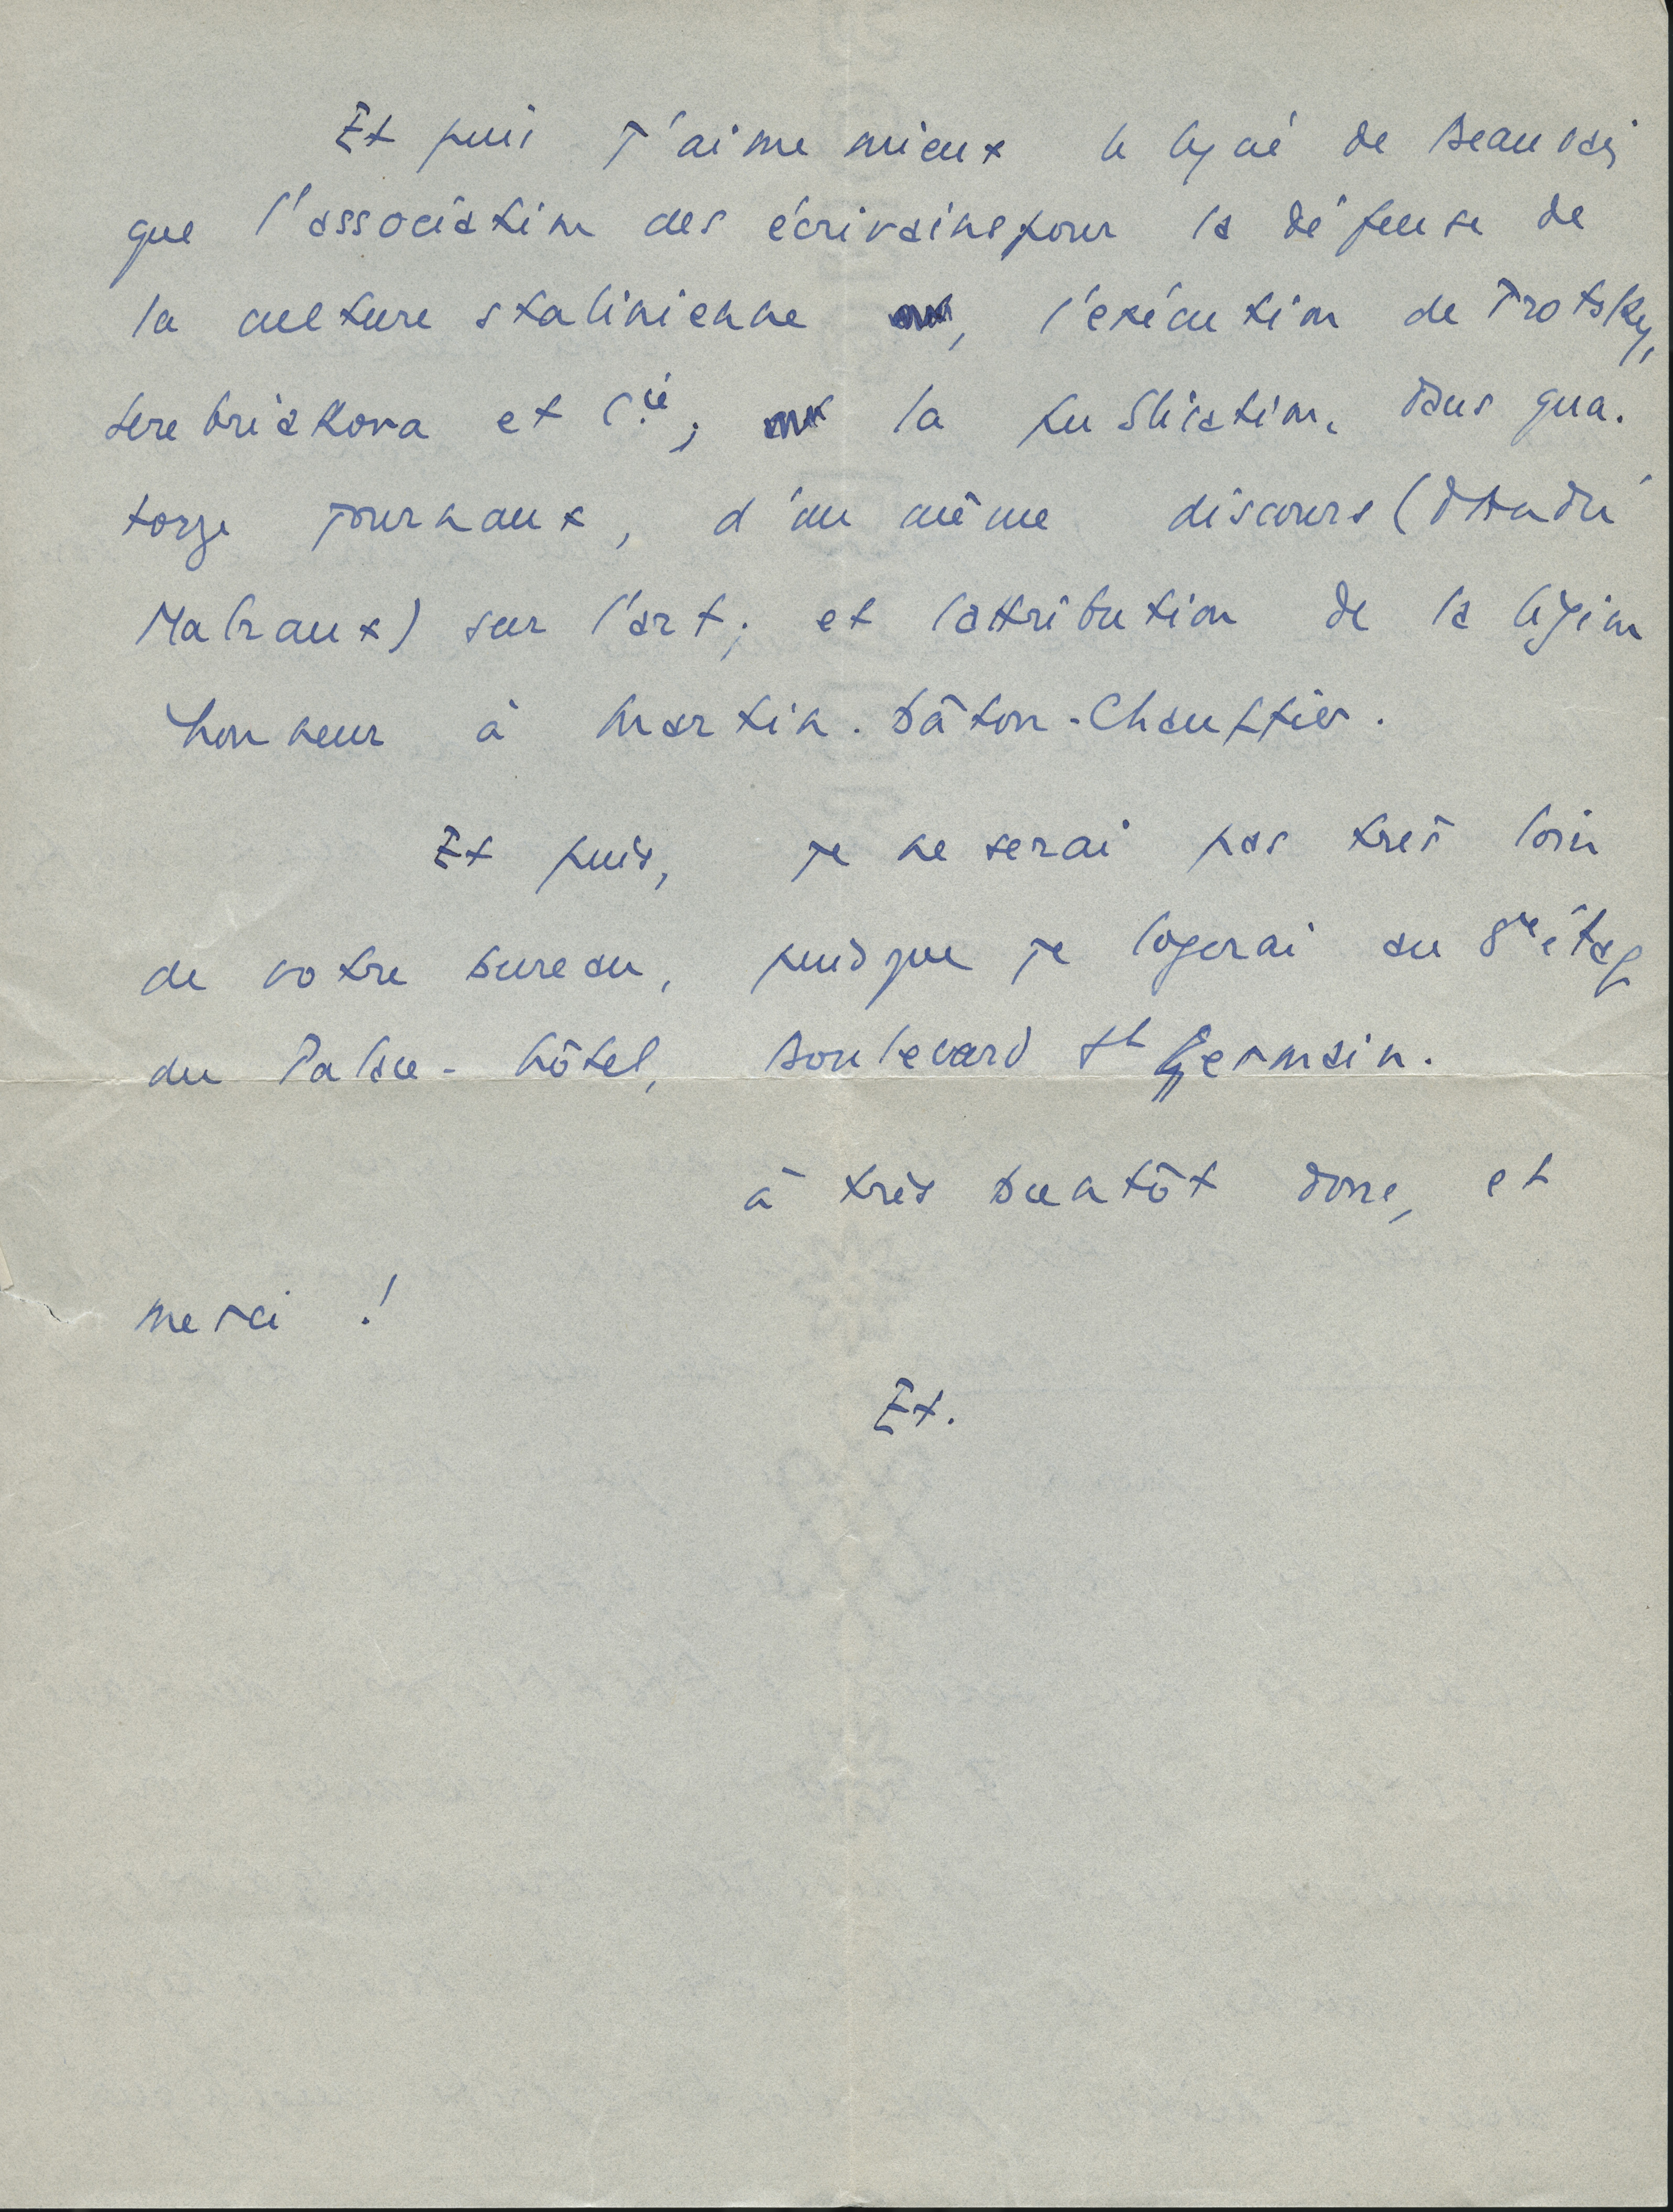 Et puis j'aime mieux le lycée de Beauvais
que l'association des écrivains pour la défense de
la culture stalinienne, l'exécution de Trotsky,
Serebriakova et Cie ; la publication, dans qua-
torze journaux, d'un même discours (d'André
Malraux) sur l'art ; et l'attribution de la légion
honneur à Martin-Bâton-Chauffier.
Et puis, je ne serai pas très loin
de votre bureau, puisque je logerai au 8me étage
du Palace-hôtel, Boulevard St Germain.
à très bientôt donc, et
merci !
Et.